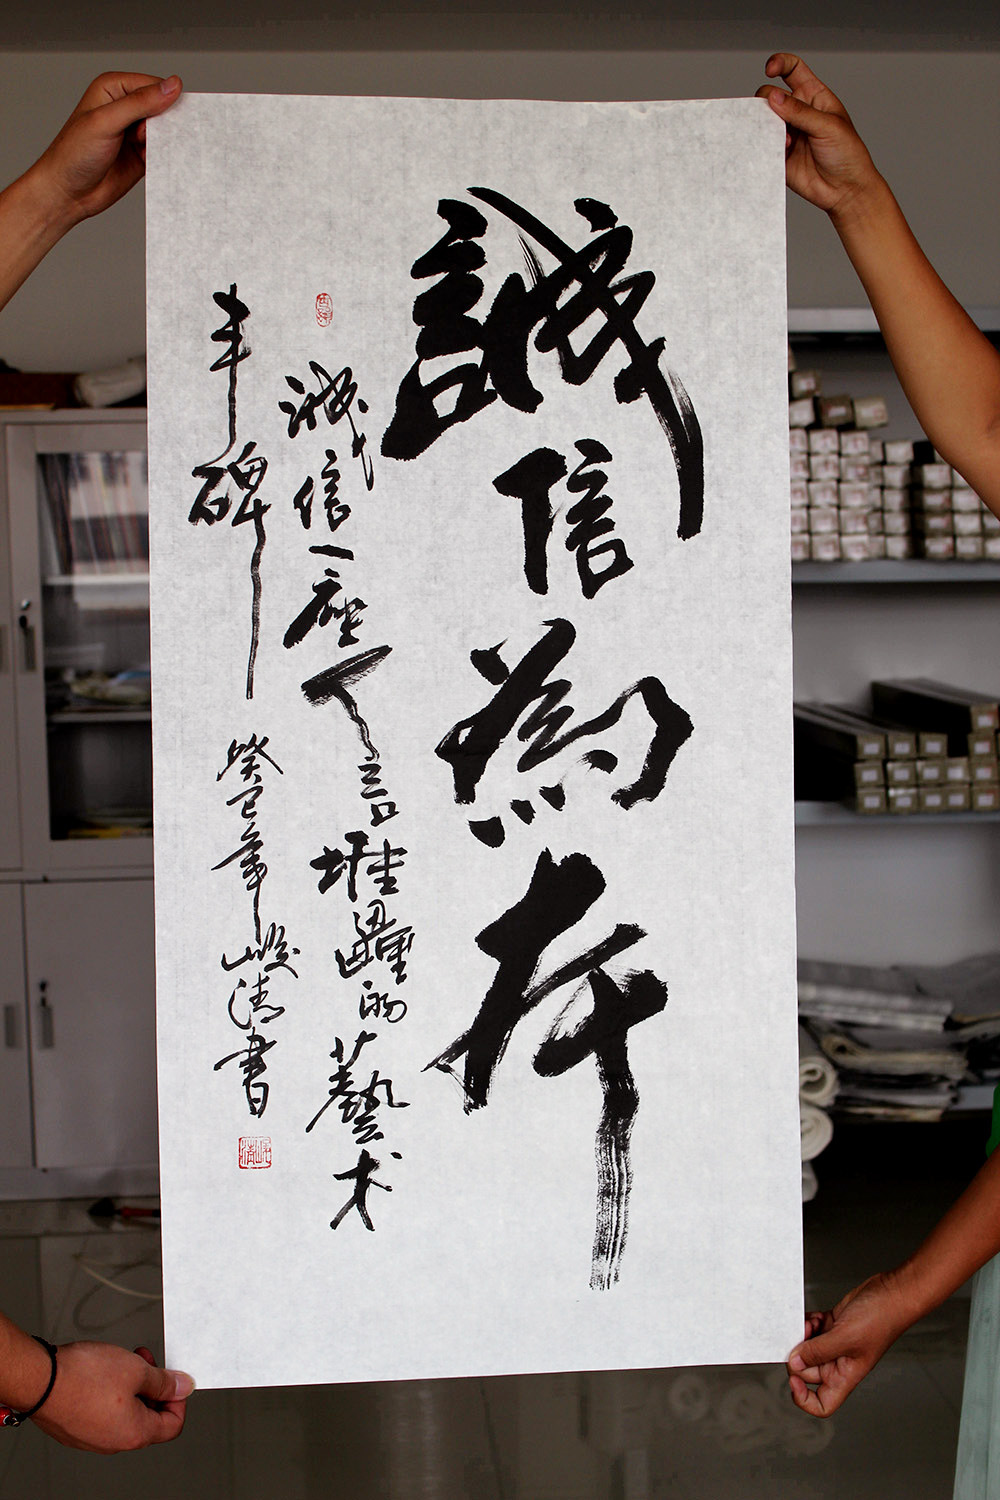 誠信為本
誠信一座言堆疊的藝术
丰碑 癸巳年峻清書